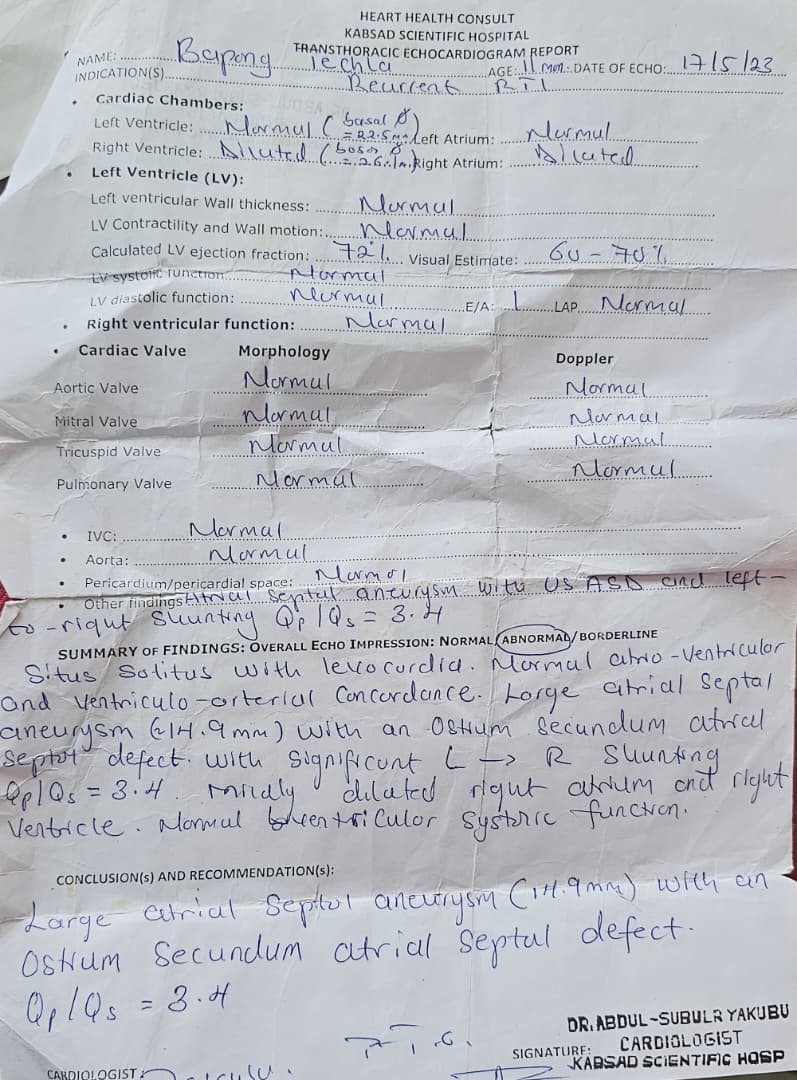 HEART HEALTH CONSULT
KABSAD SCIENTIFIC HOSPITAL
TRANSTHORACIC ECHOCARDIOGRAM REPORT
NAME: Bapong Techla AGE: 11 DATE OF ECHO: 17/5/23
INDICATION(S) Reurrent RTI
• Cardiac Chambers:
Left Ventricle: Normal (basal Ø = 22.5mm) Left Atrium: Normal
Right Ventricle: Dilated ( = 26.1 Right Atrium: Dilated
• Left Ventricle (LV):
Left ventricular Wall thickness: Normal
LV Contractility and Wall motion: Normal
Calculated LV ejection fraction: 72% Visual Estimate: 60 - 70%
LV systolic function Normal
LV diastolic function: Normal E/A: 1 LAP Normal
• Right ventricular function: Normal
• Cardiac Valve Morphology Doppler
Aortic Valve Normal Normal
Mitral Valve Normal Normal
Tricuspid Valve Normal Normal
Pulmonary Valve Normal Normal
• IVC: Normal
• Aorta: Normal
• Pericardium/pericardial space: Normal
• Other findings Atrial Septal aneurysm with OS ASD and left-
to-right Shunting Qp/Qs = 3.4
SUMMARY OF FINDINGS: OVERALL ECHO IMPRESSION: NORMAL/ABNORMAL/BORDERLINE
Situs Solitus with levocardia. Normal atrio-Ventricular
and Ventriculo-arterial Concordance. Large atrial Septal
aneurysm (14.9mm) with an Ostium Secundum atrial
Septal defect. with Significant L → R Shunting
Qp/Qs = 3.4. mildly dilated right atrium and right
Ventricle. Normal biventricular Systolic function.
CONCLUSION(s) AND RECOMMENDATION(s):
Large atrial Septal aneurysm (14.9mm) with an
Ostium Secundum atrial Septal defect.
Qp/Qs = 3.4
DR. ABDUL-SUBULR YAKUBU
CARDIOLOGIST
SIGNATURE:
KABSAD SCIENTIFIC HOSP
CARDIOLOGIST: